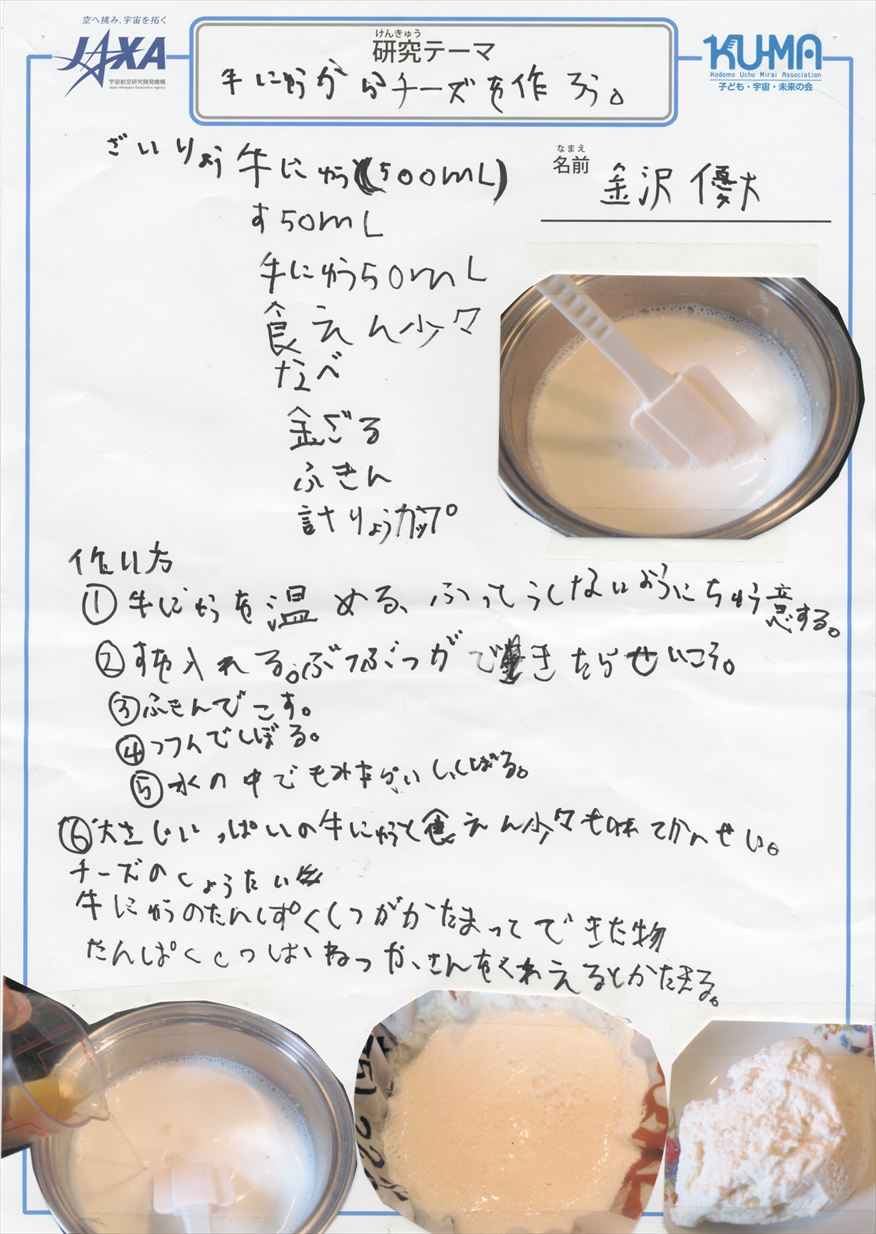 空へ挑み、宇宙を拓く
JAXA
宇宙航空研究開発機構
Japan Aerospace Exploration Agency
けんきゅう
研究テーマ
牛にゅうからチーズを作ろう。
KU-MA
Kodomo Uchu Mirai Association
子ども・宇宙・未来の会
なまえ
名前 金沢 優大
ざいりょう 牛にゅう(500mL)
す50mL
牛にゅう50mL
食えん少々
なべ
金ざる
ふきん
計りょうカップ
作り方
①牛にゅうを温める、ふっとうしないようにちゅう意する。
②すを入れる。ぶつぶつができたらせいこう。
③ふきんでこす。
④つつんでしぼる。
⑤水の中でもみあらいし、しぼる。
⑥大さじいっぱいの牛にゅうと食えん少々を味てかんせい。
チーズのしょうたい
牛にゅうのたんぱくしつがかたまってできた物
たんぱくしつは、ねつか、さんをくわえるとかたまる。